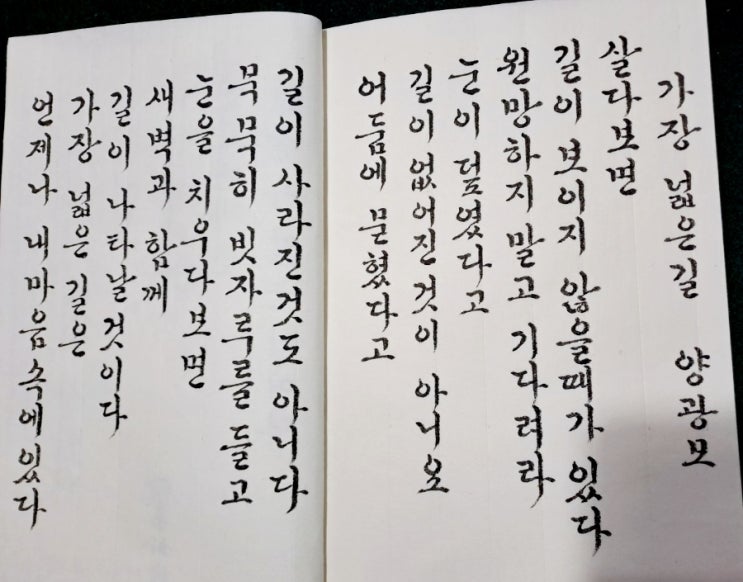 가장 넓은길 양광모
살다보면
길이 보이지 않을때가 있다
원망하지 말고 기다려라
눈이 덮였다고
길이 없어진것이 아니오
어둠에 묻혔다고
길이 사라진것도 아니다
묵묵히 빗자루를 들고
눈을 치우다보면
새벽과 함께
길이 나타날것이다
가장 넓은 길은
언제나 내마음속에있다